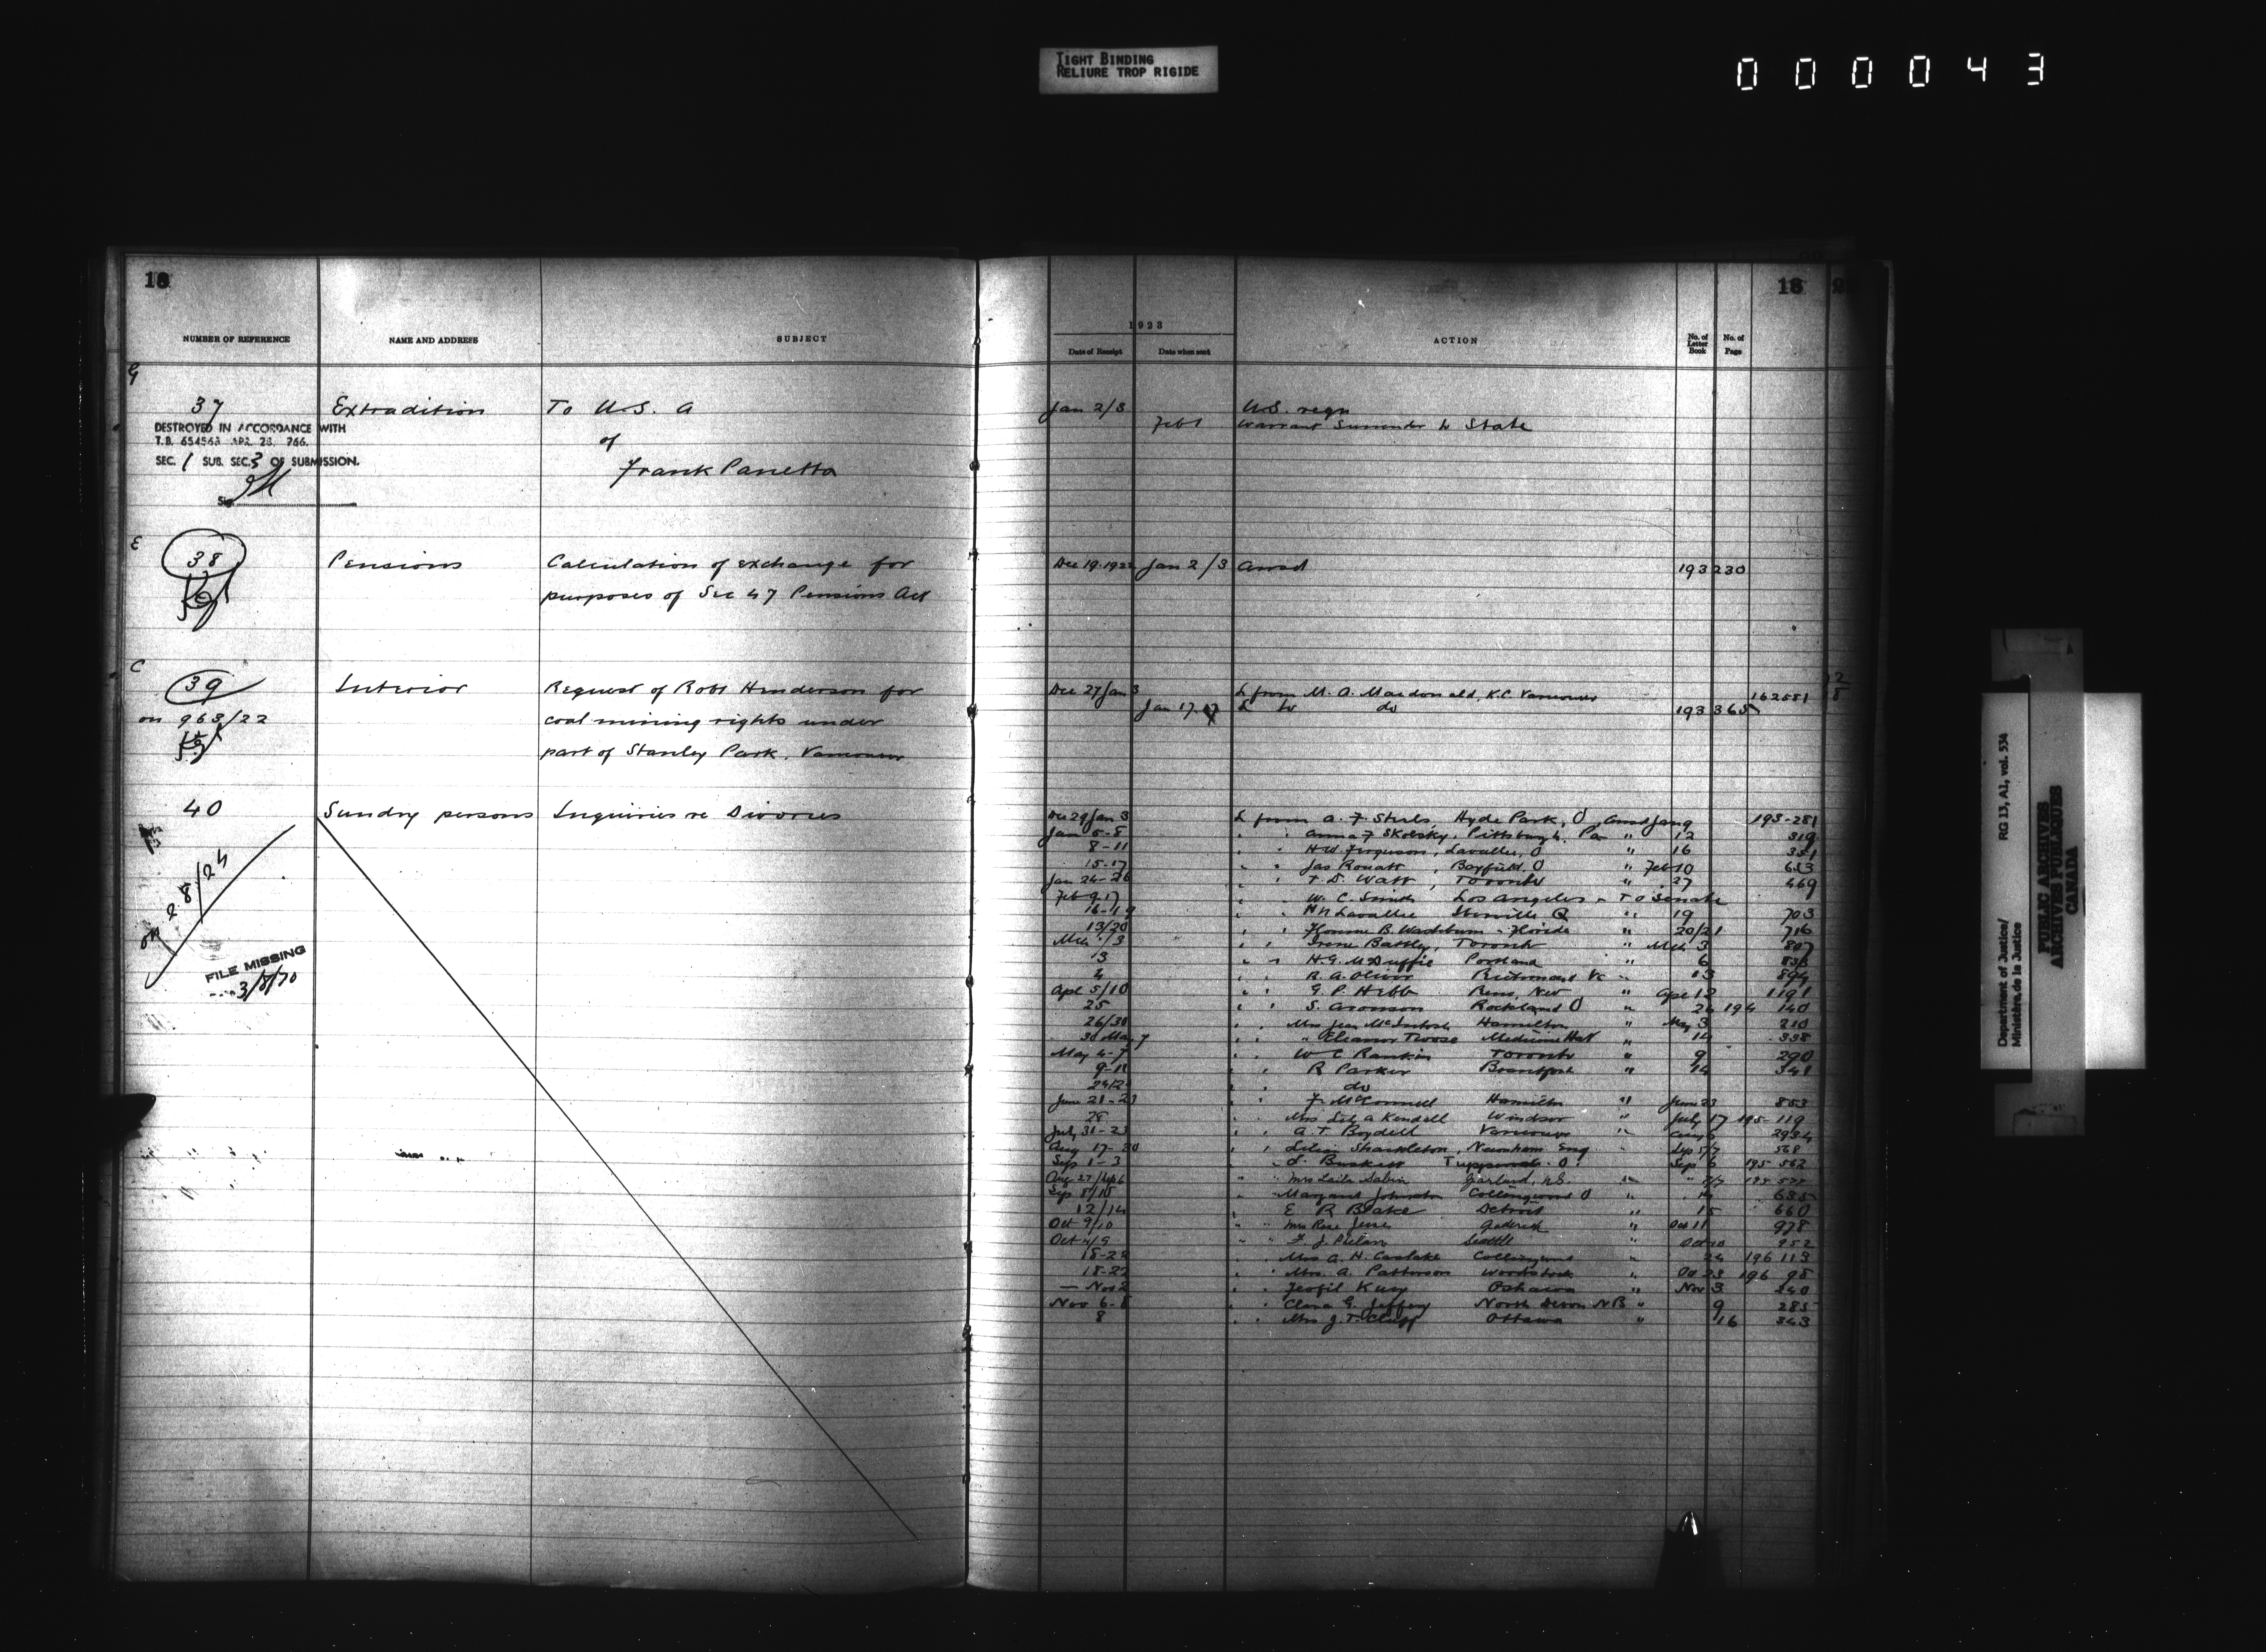 TIGHT BINDING
RELIURE TROP RIGIDE
000043
18
NUMBER OF REFERENCE NAME AND ADDRESS SUBJECT
G
37 Extradition To U.S. A
DESTROYED IN ACCORDANCE WITH
T.B. 654563 APR. 28, 766.
SEC. 1 SUB. SEC. 3 OF SUBMISSION.
of
Frank Panetta
Sig
E
38 Pensions Calculation of exchange for
purposes of Sec 47 Pensions Act
C
39 Interior Request of Robt Henderson for
on 963/22 coal mining rights under
part of Stanley Park, Vancouver
40 Sundry persons Inquiries re Divorces
on 28/24
FILE MISSING
3/8/70
18
1923
Date of Receipt Date when sent ACTION No. of Letter Book No. of Page
Jan 2/3 U.S. reqn
Feb 1 Warrant Surrender to State
Dec 19.1922 Jan 2/3 Answd 193 230
Dec 27 Jan 3 L from M. A. Macdonald, K.C. Vancouver 162581
Jan 17 L to do 193 365
Dec 29 Jan 3 L from A. F. Hyde Park, O Answd Jan 9 193-281
Jan 5-8 " " Anna F Skolsky, Pittsburgh, Pa " 12 319
8-11 " " H.W. Ferguson, Lavallee, O " 16 351
15-17 " " Jas Bayfield, O " Feb 10 633
Jan 24-26 " " T. D. Watt, Toronto " 27 469
Feb 9-17 " " W. C. Smith Los Angeles " To Senate
16-19 " " Lavallee Q " 19 703
13/20 " " Florence B. Washburn - Florida " 20/21 716
Mch 1/3 " " Irene Battley, Toronto " Mch 3 807
13 " " H. G. McDuffie Portland " 6 836
2 " " R. A. Oliver Richmond Va " 13 894
Apl 5/10 " " G. P. Hebb " Apl 12 1191
25 " " S. Aronson Rockland O " 26 194 140
26/30 " " Mrs Jean McIntosh Hamilton " May 3 210
30 May 7 " Eleanor Medicine Hat " 14 338
May 4-7 " " W C Rankin Toronto " 9 290
9-11 " " R Parker Brantford " 14 341
" " do
June 21-23 " " F. McConnell Hamilton " June 23 853
28 Mrs Kendell Windsor " July 17 195-119
July 31-23 " " A. T. Boydell Vancouver " Aug 6 293
Aug 17-30 " " Lilian Shackleton, Newnham Eng " Sep 5/7 568
Sep 1-3 Sep 6 195 562
Aug 27/Sep 6 " " Mrs Laila Sabin Garland, N.S. " 195 522
Sep 8/10 " Margaret Johnston Collingwood O " 14 635
12/14 " E R Blake Detroit " 15 660
Oct 9/10 " " Mrs Rose Goderich " Oct 11 978
Oct 4/9 " " F. J. Phelan Seattle " Oct 10 952
18-22 " " Mrs A. H. Carslake " 24 196 113
18-22 " " Mrs. A. Patterson Woodstock " Oct 23 196 98
— Nov 2 " " Oshawa " Nov 3 240
Nov 6-8 " " Clara G. Jeffery North Devon NB " 9 285
8 " " Mrs J. T. Cluff Ottawa " 16 343
Department of Justice/ RG 13, A1, vol. 534
Ministère de la Justice
PUBLIC ARCHIVES
ARCHIVES PUBLIQUES
CANADA